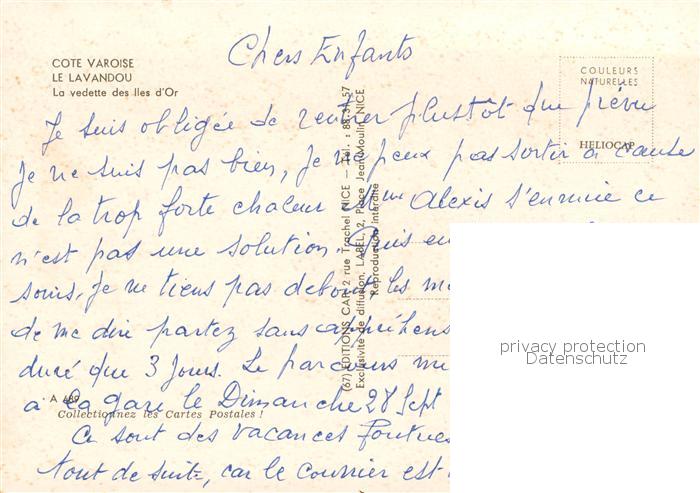 COTE VAROISE
LE LAVANDOU
La vedette des Iles d'Or
COULEURS
NATURELLES
HELIOCAP
Chers Enfants
Je suis obligée de rentrer plustôt que prévu
Je ne suis pas bien, Je ne peux pas sortir à cause
de la trop forte chaleur Alexis s'ennuie ce
n'est pas une solution. Puis en
Je ne tiens pas debout, les
de me dire partez sans appréhens
duré que 3 Jours. Le parcours
a la gare le Dimanche 28 Sept
Ce sont des vacances foutues
tout de suite, car le courrier est
A 689
Collectionnez les Cartes Postales !
(67) EDITIONS CAP, 2 rue Trachel NICE — Tel. : 88.31.57
Exclusivité de diffusion, LABEL, 2, Place Jean-Moulin, NICE
Reproduction interdite
privacy protection
Datenschutz